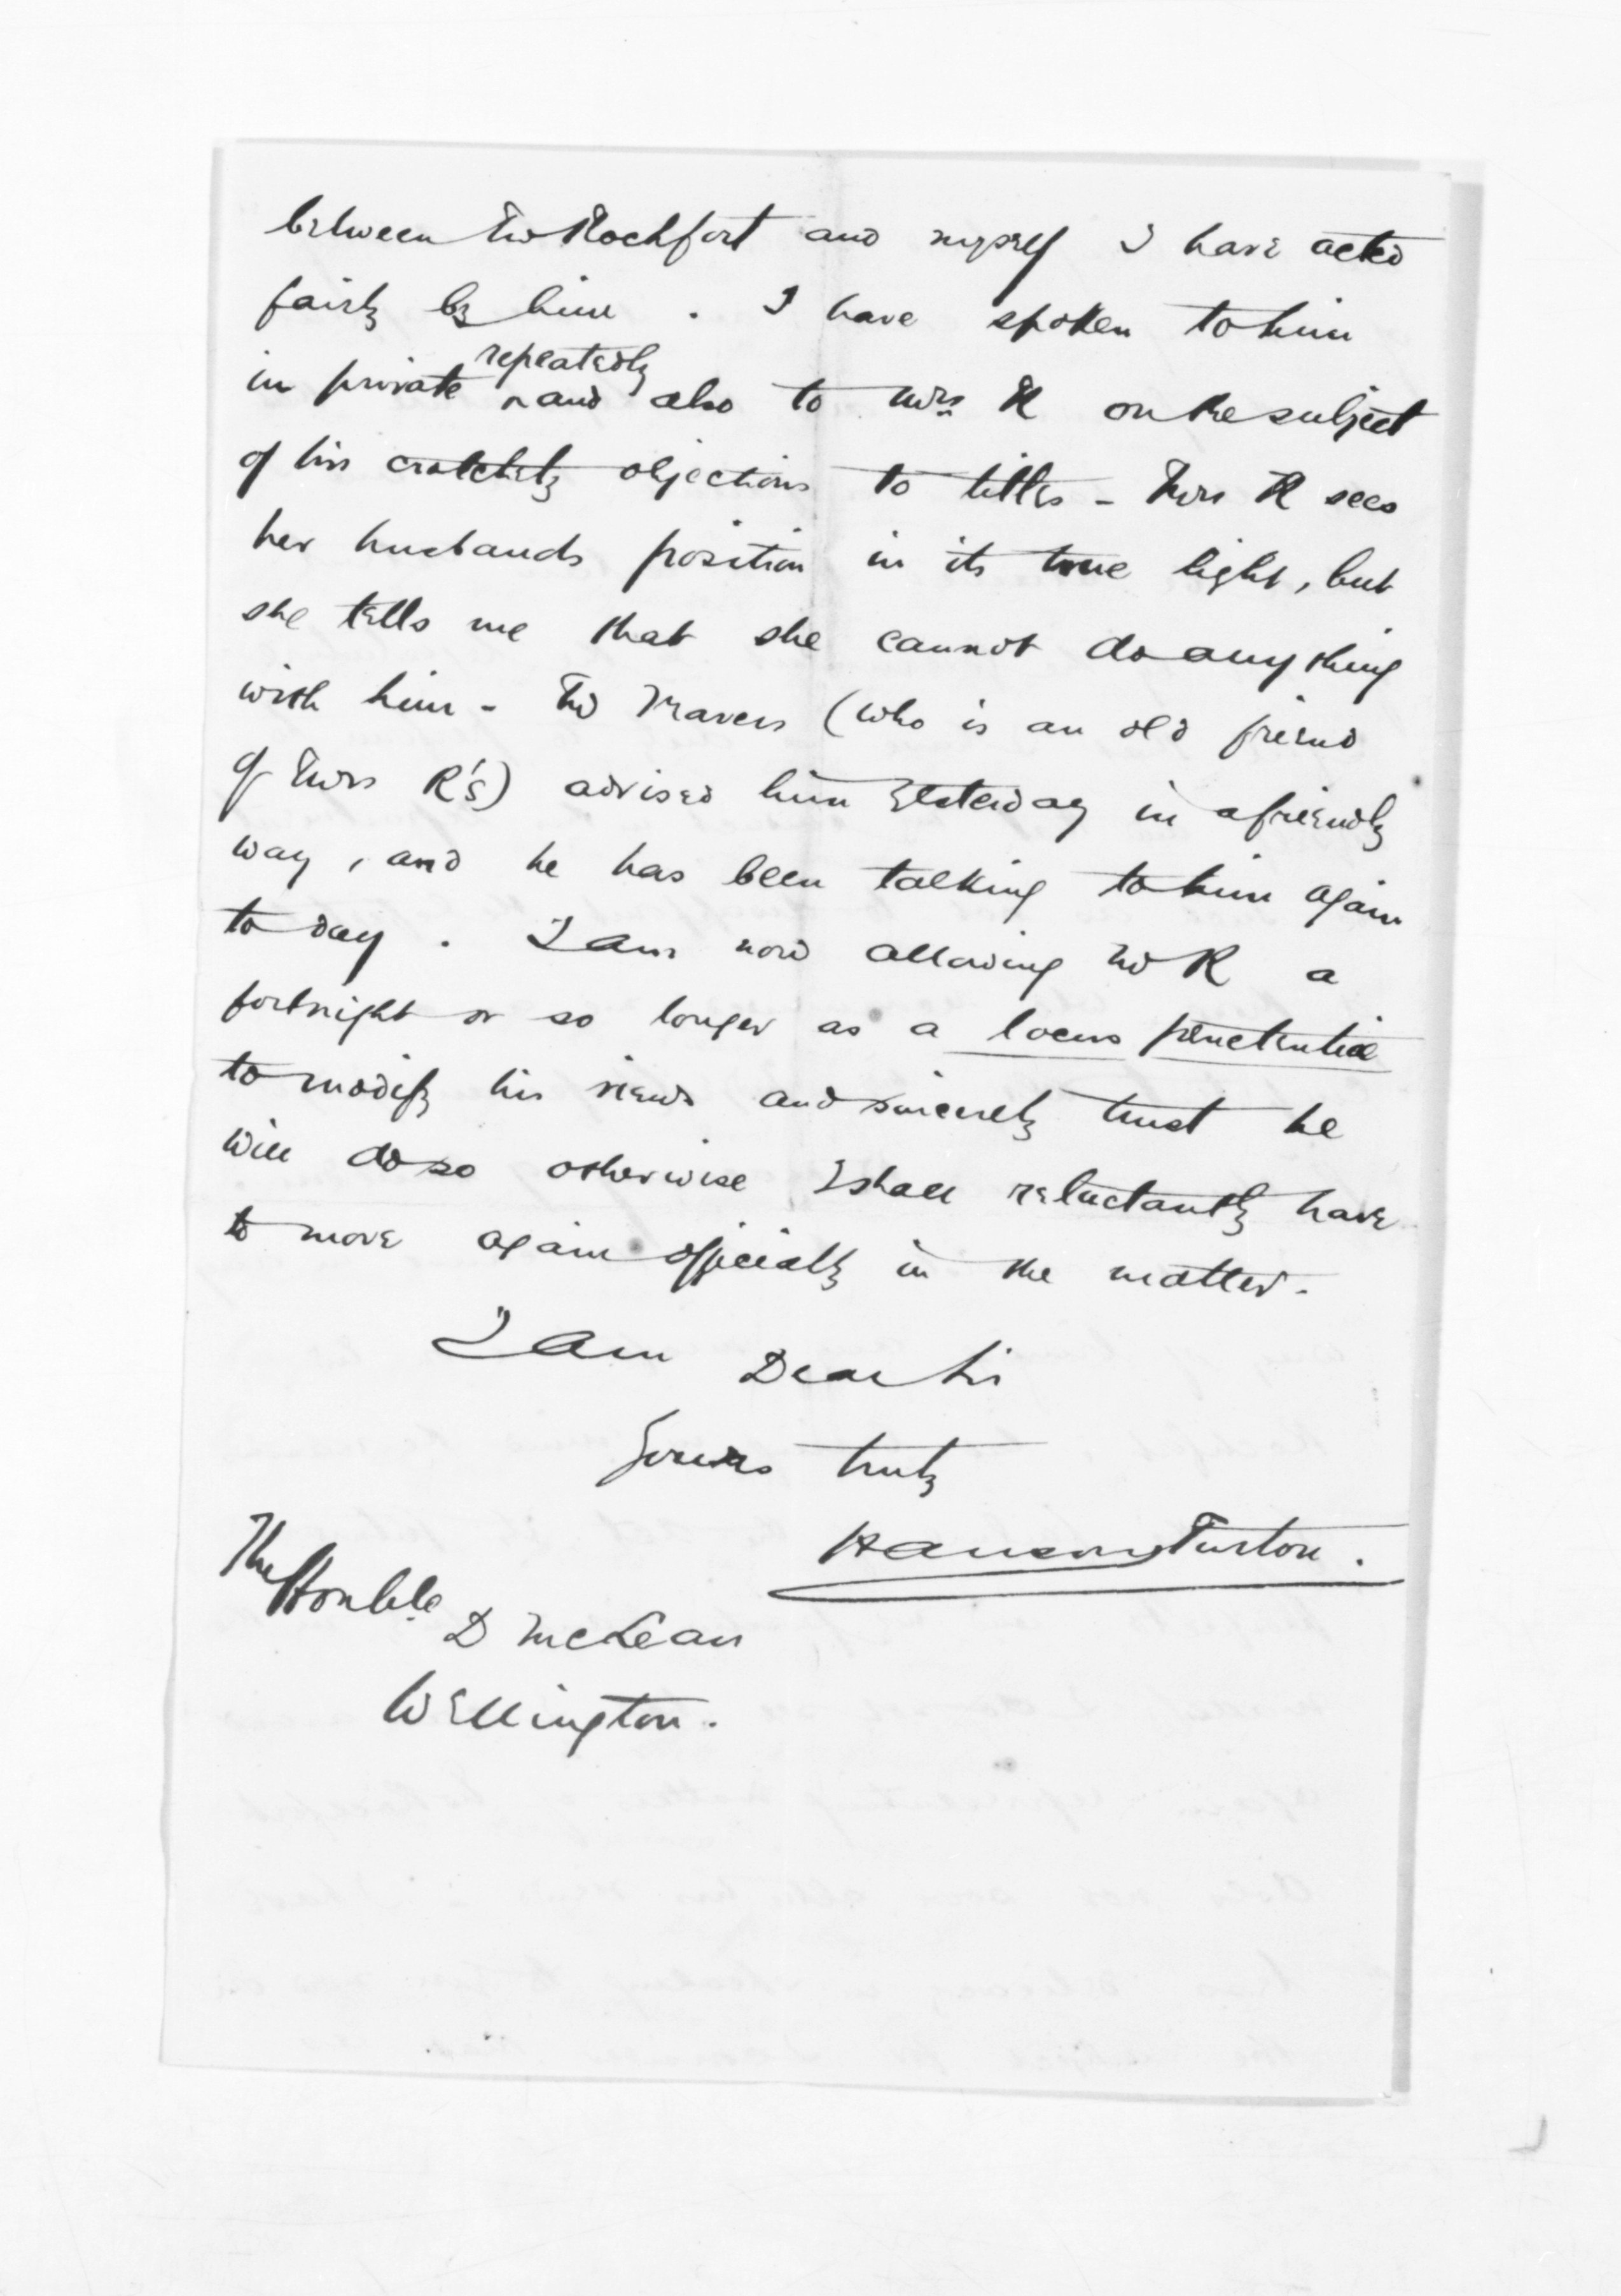 between Mr Rochfort and myself I have acted
fairly by him . I have spoken to him
in private repeatedly and also to Mrs R on the subject
of his crotchety objections to titles - Mrs R sees
her husbands position in its true light, but
she tells me that she cannot do anything
with him - Mr Travers (who is an old friend
of Mrs R's) advised him yesterday in a friendly
way, and he has been talking to him again
to day . I am now allowing Mr R a
fortnight or so longer as a locus penetentiae
to modify his views and sincerely trust he
will do so otherwise I shall reluctantly have
to move again officially in the matter.
I am Dear Sir
Yours truly
Hanson Turton.
The Honble
D McLean
Wellington.